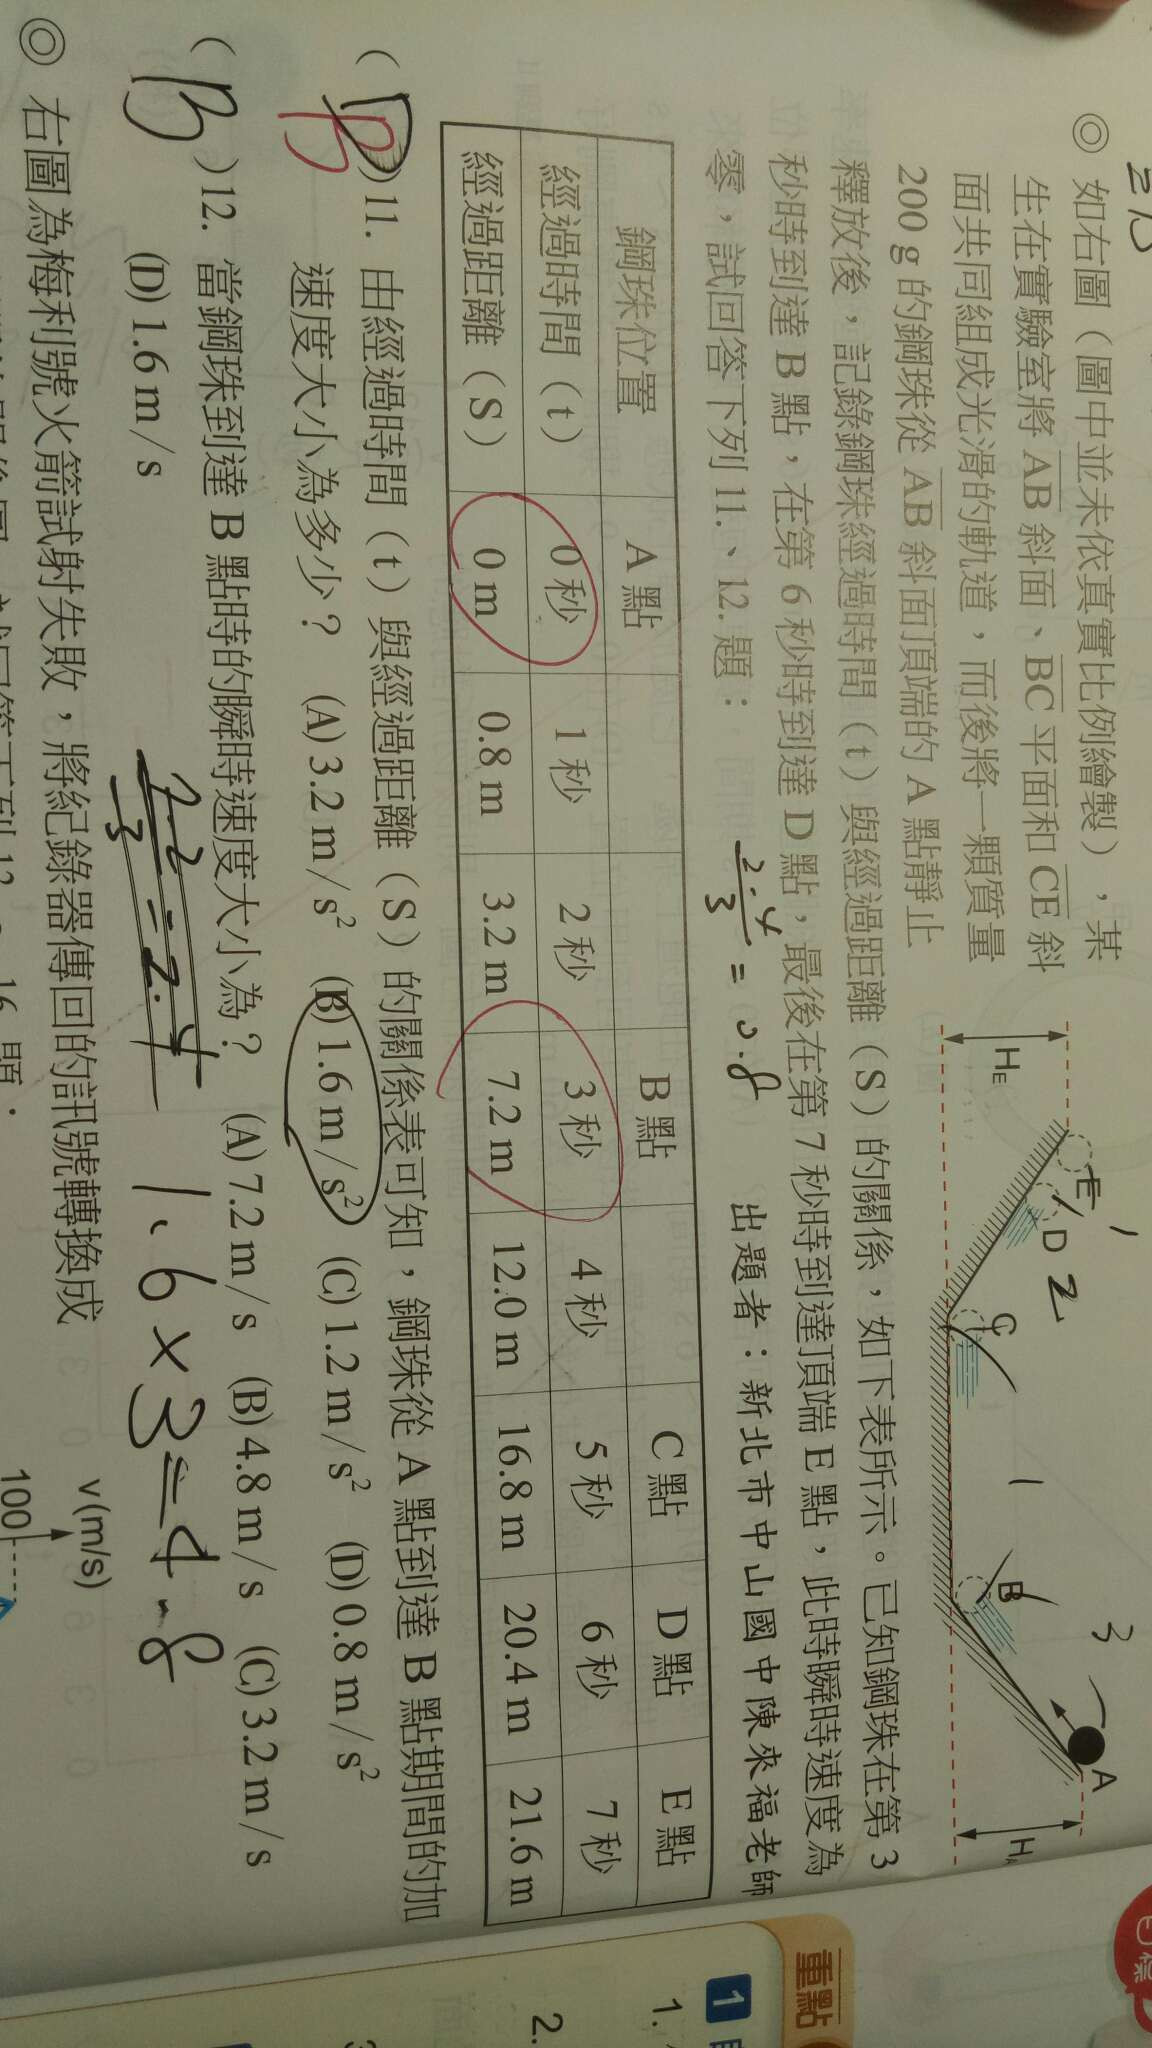 ◎ 如右圖（圖中並未依真實比例繪製），某
生在實驗室將 AB 斜面、BC 平面和 CE 斜
面共同組成光滑的軌道，而後將一顆質量
200 g 的鋼珠從 AB 斜面頂端的 A 點靜止
釋放後，記錄鋼珠經過時間（t）與經過距離（S）的關係，如下表所示。已知鋼珠在第 3
秒時到達 B 點，在第 6 秒時到達 D 點，最後在第 7 秒時到達頂端 E 點，此時瞬時速度為
零，試回答下列 11.、12. 題：
出題者：新北市中山國中陳來福老師
HE
E
D
C
B
A
1
2
1
3
2.4/3 = 0.8
鋼珠位置 A 點 B 點 C 點 D 點 E 點
經過時間（t） 0 秒 1 秒 2 秒 3 秒 4 秒 5 秒 6 秒 7 秒
經過距離（S） 0 m 0.8 m 3.2 m 7.2 m 12.0 m 16.8 m 20.4 m 21.6 m
( D )11. 由經過時間（t）與經過距離（S）的關係表可知，鋼珠從 A 點到達 B 點期間的加
B
速度大小為多少？ (A) 3.2 m/s² (B) 1.6 m/s² (C) 1.2 m/s² (D) 0.8 m/s²
( B )12. 當鋼珠到達 B 點時的瞬時速度大小為？ (A) 7.2 m/s (B) 4.8 m/s (C) 3.2 m/s
(D) 1.6 m/s
1.6×3=4.8
◎ 右圖為梅利號火箭試射失敗，將紀錄器傳回的訊號轉換成
v(m/s)
100
目標
重點
1
1.
2.